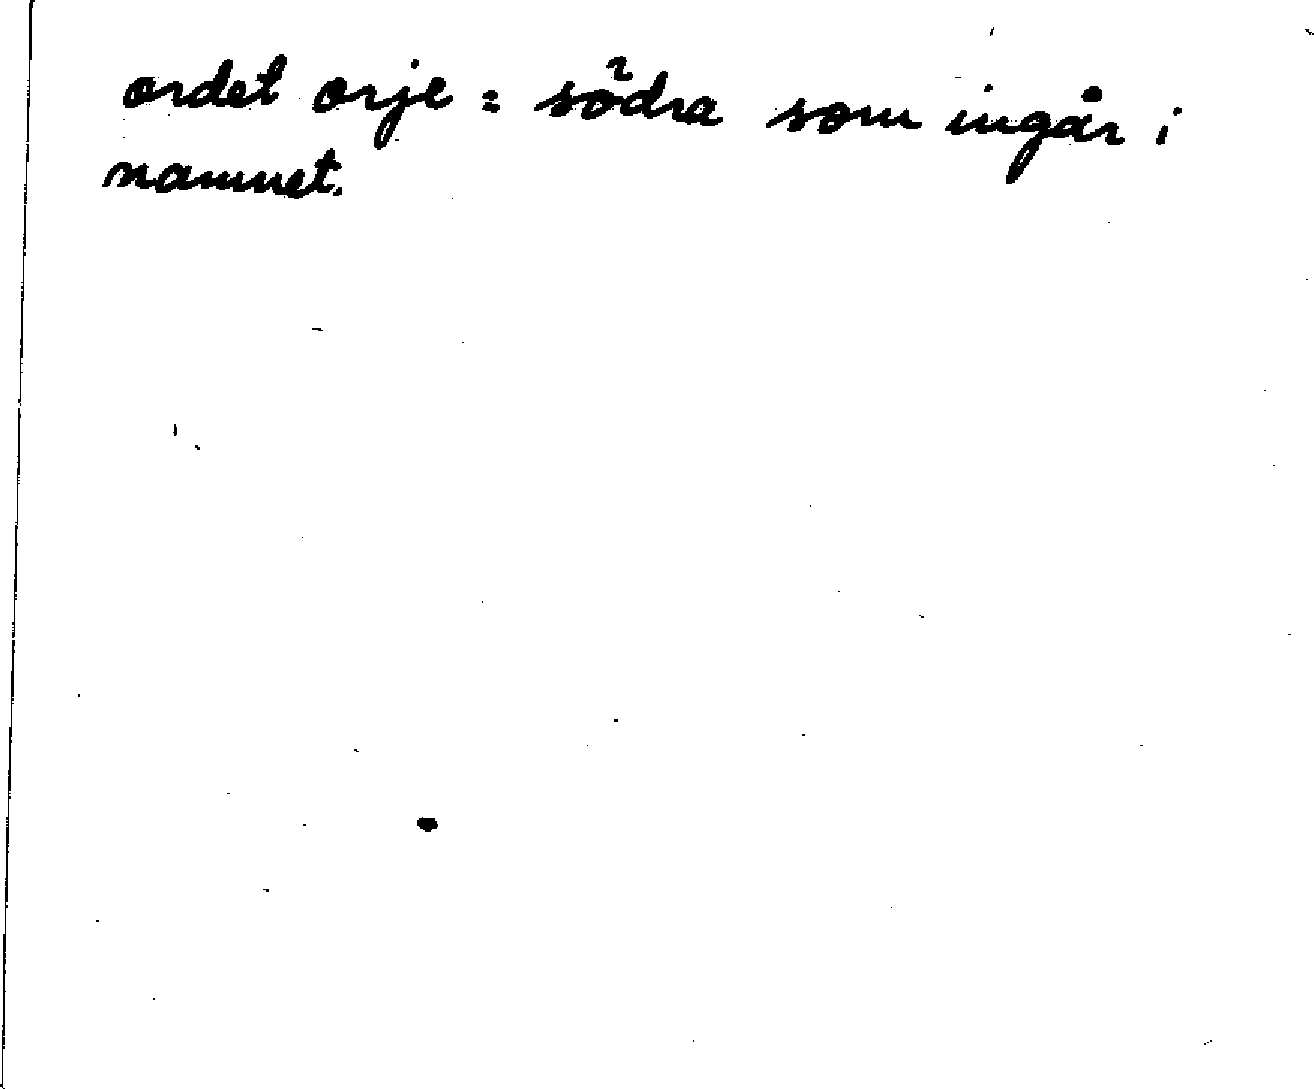 ordet orje = södra som ingår i
namnet.